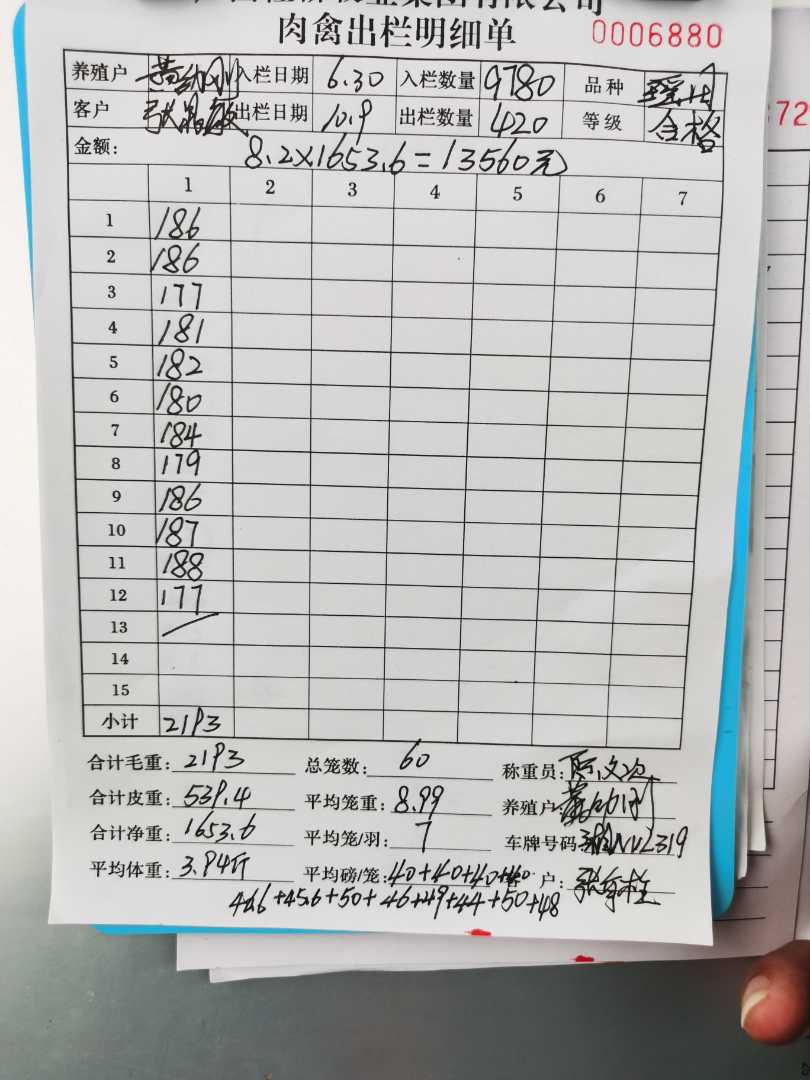 集团有限公司
肉禽出栏明细单 0006880
养殖户 入栏日期 6.30 入栏数量 9780 品种
客户 出栏日期 10.9 出栏数量 420 等级 合格
金额: 8.2×1653.6=13560元
1 2 3 4 5 6 7
1 186
2 186
3 177
4 181
5 182
6 180
7 184
8 179
9 186
10 187
11 188
12 177
13
14
15
小计 2193
合计毛重: 2193 总笼数: 60 称重员:
合计皮重: 539.4 平均笼重: 8.99 养殖户:
合计净重: 1653.6 平均笼/羽: 7 车牌号码:
平均体重: 3.94斤 平均磅/笼: 40+40+40+40 客户:
+45.6+50+46+49+44+50+48
72